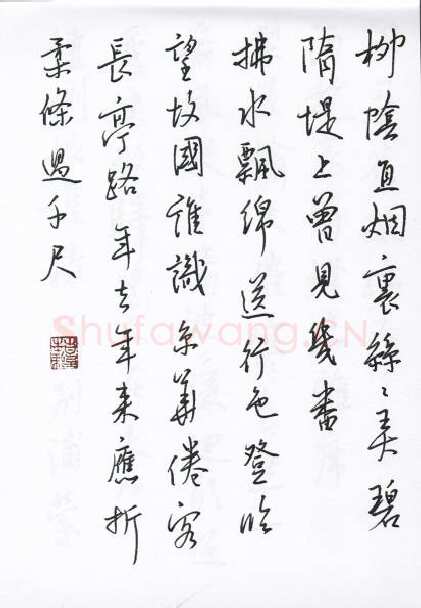 柳陰直烟裏絲〻弄碧
隋堤上曾見幾番
拂水飄綿送行色登臨
望故國誰識京華倦客
長亭路年去年来應折
柔條過千尺
Shufawang.CN